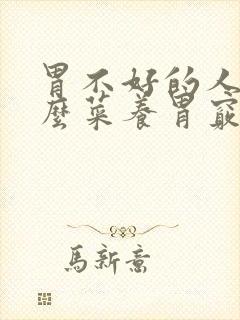 胃不好的人
麼菜養胃窮
馬新意